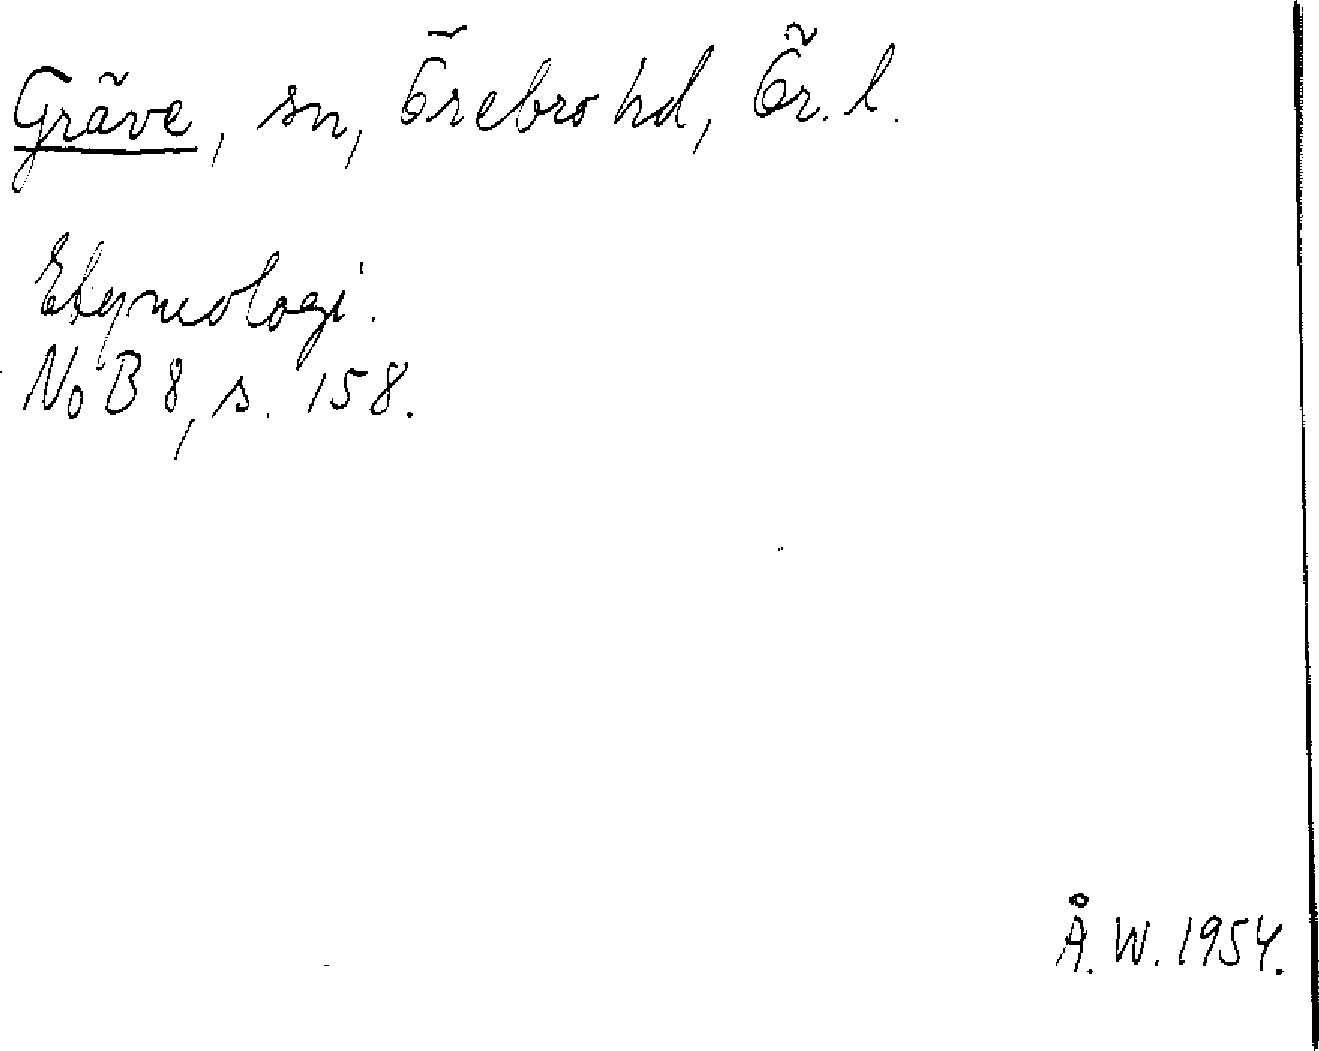 Gräve, sn, Örebro hd, Ör. l.
Etymologi.
NoB 8, s. 158.
Å. W. 1954.